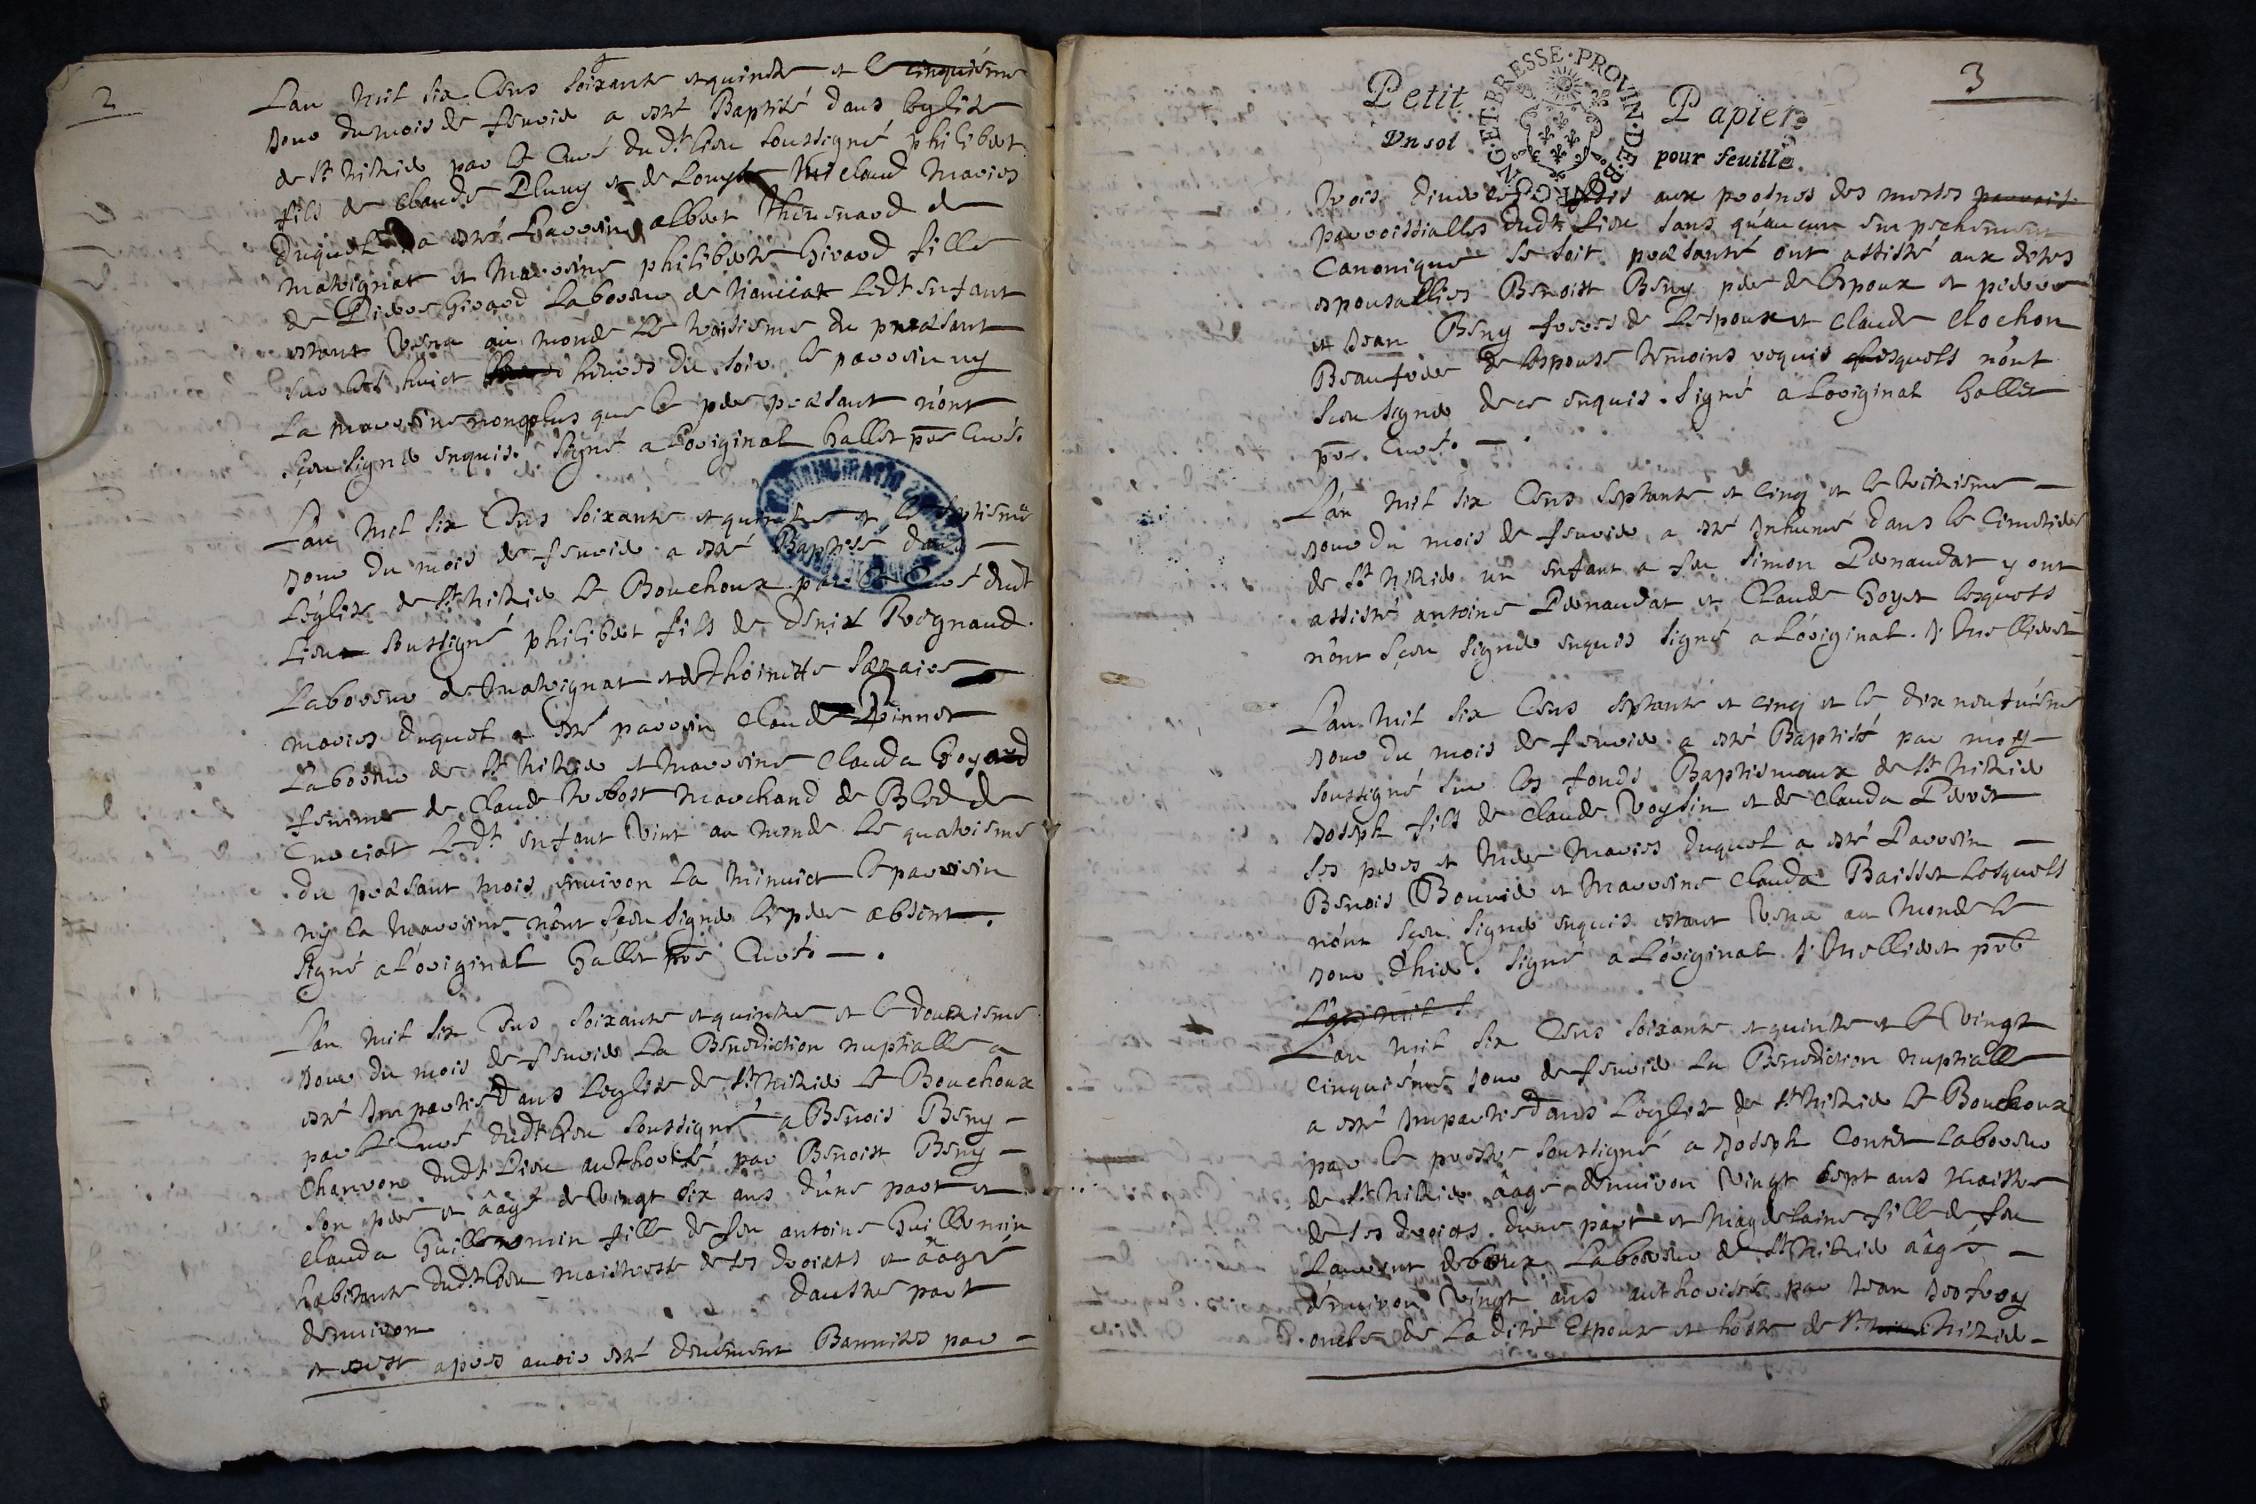 2
Lan mil six Cens soixante et quinze et le cinquiéme
Jour du mois de feurier a esté Baptisé dans leglise
de St Nizier par le Curé dudt lieu soussigné philibert
fils de Claude Pluny et de Louyse Michaud Mariés
duquel a esté Parrain albert Theuenard de
Malvignat et Marreine philiberte Girard fille
de Pierre Girard Laboureur de Nanciat Ledt enfant
estant Venu au monde Le troisieme du presant
sur les huict heures du soir le parrain ny
La marreine nonplus que le pere presant n'ont
sceu signer enquis. signé a Loriginal Gallet pbre Curé.
L'an Mil six Cens soixante et quinze et le septiesme
Jour du mois de feurier a esté Baptisé dans
L'églize de St Nizier Le Bouchoux par le Curé dudt
Lieu soussigné philibert fils de Denis Regnaud
Laboureur de Malvignat et de Thoinette
maries duquel a esté parrain Claude Pinnet
Laboureur de St Nizier et Marreine Clauda Goyard
femme de Claude Marchand de Bled de
Curciat Ledt enfant Vint au monde Le quatriesme
du presant mois enuiron La Minuict le parrein
ny la Marreine n'ont sceu signer le pere absent.
signé a L'original Gallet pbre Curé.
L'an mil six Cens soixante et quinze et le douziesme
Jour du mois de feurier La Benediction nuptialle a
esté Impartie dans Leglize de St Nizier Le Bouchoux
par le Curé dudt lieu soussigné a Benois Beny
Charron dudt Lieu authorizé par Benoist Beny
son pere et ââgé de Vingt six ans d'une part et
Clauda Guillermin fille de feu antoine Guillermin
habitante dudt lieu maistresse de ses droicts et ââgé
denuiron dautre part
et apres auoir esté deuëment Bannies par
3
Petit Papier
Vn sol pour feuille.
BOVRGONG·ET·BRESSE·PROVIN·DE
trois diuerses fois aux prosnes des messes parrois
parroissialles dudt Lieu sans qu'aucun empechement
Canonique se soit presanté ont assisté aux dites
espousallies Benoist Beny pere de lespoux et pierre
et Jean Beny freres de Lespoux et Claude Clochon
Beaufrere de lespouse temoins requis lesquels n'ont
sceu signer de ce enquis. signé a Loriginal Gallet
pbre. Curé.
L'an mil six Cens septante et cinq et le
Jour du mois de feurier a esté Inhumé dans le Cimetiere
de St Nizier un enfant a feu Simon Pernaudat y ont
assisté antoine Pernaudat et Claude Goyet lesquels
n'ont sceu signer enquis signé a L'original. J
L'an mil six Cens septante et cinq et le dix neufuiésme
Jour du mois de feurier a esté Baptisé par moy
soussigné sur les fonds Baptismaux de St Nizier
Joseph fils de Claude Voysin et de Clauda Perret
ses peres et Mere Maries duquel a esté Parrein
Benois Bouuier et Marreine Clauda Baisset Lesquels
n'ont sceu signer enquis estant Venu au Monde le
Jour d'hier. signé a L'original J pbre
L'an mil s
L'an mil six Cens soixante et quinze et le Vingt
cinquiéme Jour de feurier La Benediction Nuptialle
a esté Impartie dans L'églize de St Nizier Le Bouchoux
par le prestre soussigné a Joseph Contet Laboureur
de St Nizier ââgé denuiron Vingt sept ans Maistre
de ses droicts. d'une part et Magdelaine fille de feu
Laurent Laboureur de St Nizier ââgée
d'enuiron Vingt ans authorisée par Jean Jeofray
oncle de La dite Espouse et hoste de St Nizier